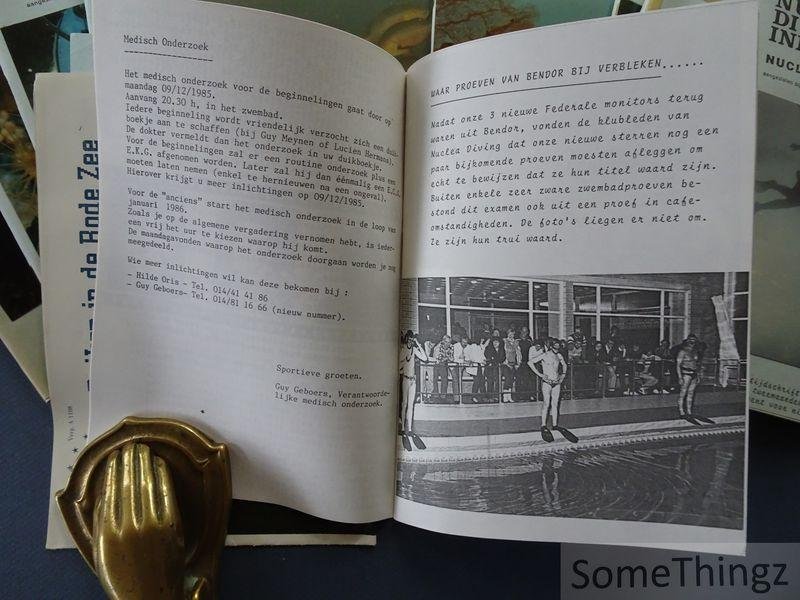 Medisch Onderzoek
Het medisch onderzoek voor de beginnelingen gaat door op
maandag 09/12/1985.
Aanvang 20.30 h, in het zwembad.
Iedere beginneling wordt vriendelijk verzocht zich een duik-
boekje aan te schaffen (bij Guy Meynen of Lucien Hermans).
De dokter vermeldt dan het onderzoek in uw duikboekje.
Voor de beginnelingen zal er een routine onderzoek plus een
E.K.G. afgenomen worden. Later zal hij dan éénmalig een E.C.G.
moeten laten nemen (enkel te hernieuwen na een ongeval).
Hierover krijgt u meer inlichtingen op 09/12/1985.
Voor de "anciens" start het medisch onderzoek in de loop van
januari 1986.
Zoals je op de algemene vergadering vernomen hebt, is ieder-
een vrij het uur te kiezen waarop hij komt.
De maandagavonden waarop het onderzoek doorgaan worden je nog
meegedeeld.
Wie meer inlichtingen wil kan deze bekomen bij :
- Hilde Oris - Tel. 014/41 41 86
- Guy Geboers- Tel. 014/81 16 66 (nieuw nummer).
Sportieve groeten.
Guy Geboers, Verantwoorde-
lijke medisch onderzoek.
WAAR PROEVEN VAN BENDOR BIJ VERBLEKEN......
Nadat onze 3 nieuwe Federale monitors terug
waren uit Bendor, vonden de klubleden van
Nuclea Diving dat onze nieuwe sterren nog een
paar bijkomende proeven moesten afleggen om
echt te bewijzen dat ze hun titel waard zijn.
Buiten enkele zeer zware zwembadproeven be-
stond dit examen ook uit een proef in cafe-
omstandigheden. De foto's liegen er niet om.
Ze zijn hun trui waard.
in de Rode Zee
NUCL
SomeThingz